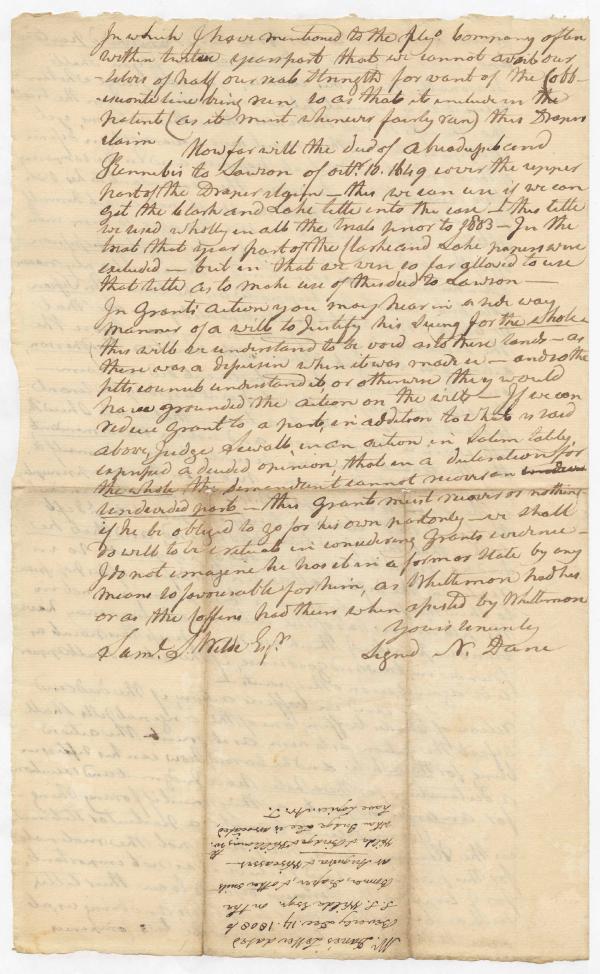 In which I have mentioned to the Plyo Company often
within twelve years past that we cannot avail our
-selves of half our real strength for want of the Cobb-
-isconte line being run so as that it include in the
patent (as it must whenever fairly run) this Draper
claim
How far will the deed of Abeadusett and
Kennebis to Lawson of octr. 10. 1649 cover the upper
part of the Draper claim — this we can use if we can
get the Clark and Lake title into the case — this title
we used wholly in all the trials prior to 1803 — In the
trial that year part of the Clarke and Lake papers were
excluded — but in that we were so far allowed to use
that title as to make use of this deed to Lawson —
In Grants action you may hear in a
manner of a will to Justify his Suing for the whole
(this will we understand to be void as to these lands — as
there was a disseisin when it was made — and so the
pltfs council understand it, or otherwise they would
have grounded the action on the will — If we can
reduce Grant to a part, in addition to what is said
above, Judge Sewall in an action in Salem lately,
expressed a decided opinion, that in a declaration for
the whole the demandant cannot recover an
undivided part — thus Grants must recover or nothing
if he be obliged to go for his own part only — we shall
do well to be critical in considering Grants evidence —
I do not imagine he has it in a former state by any
means so favourable for him, as Whittemore had his
or as the Coffins had theirs when assisted by Whittemore
Yours sincerely
Saml. S Wilde Esqr.
Signd N. Dane
Mr. Dane's Letter dated
Beverly Dec. 14. 1808 to
S. S. Wilde Esqr. on the
Bowman, Draper, & other suits
at Augusta & Wiscasset —
Wilde & Bridge & Williams, to
whom Judge Lee is associated,
have Copies on it. T.